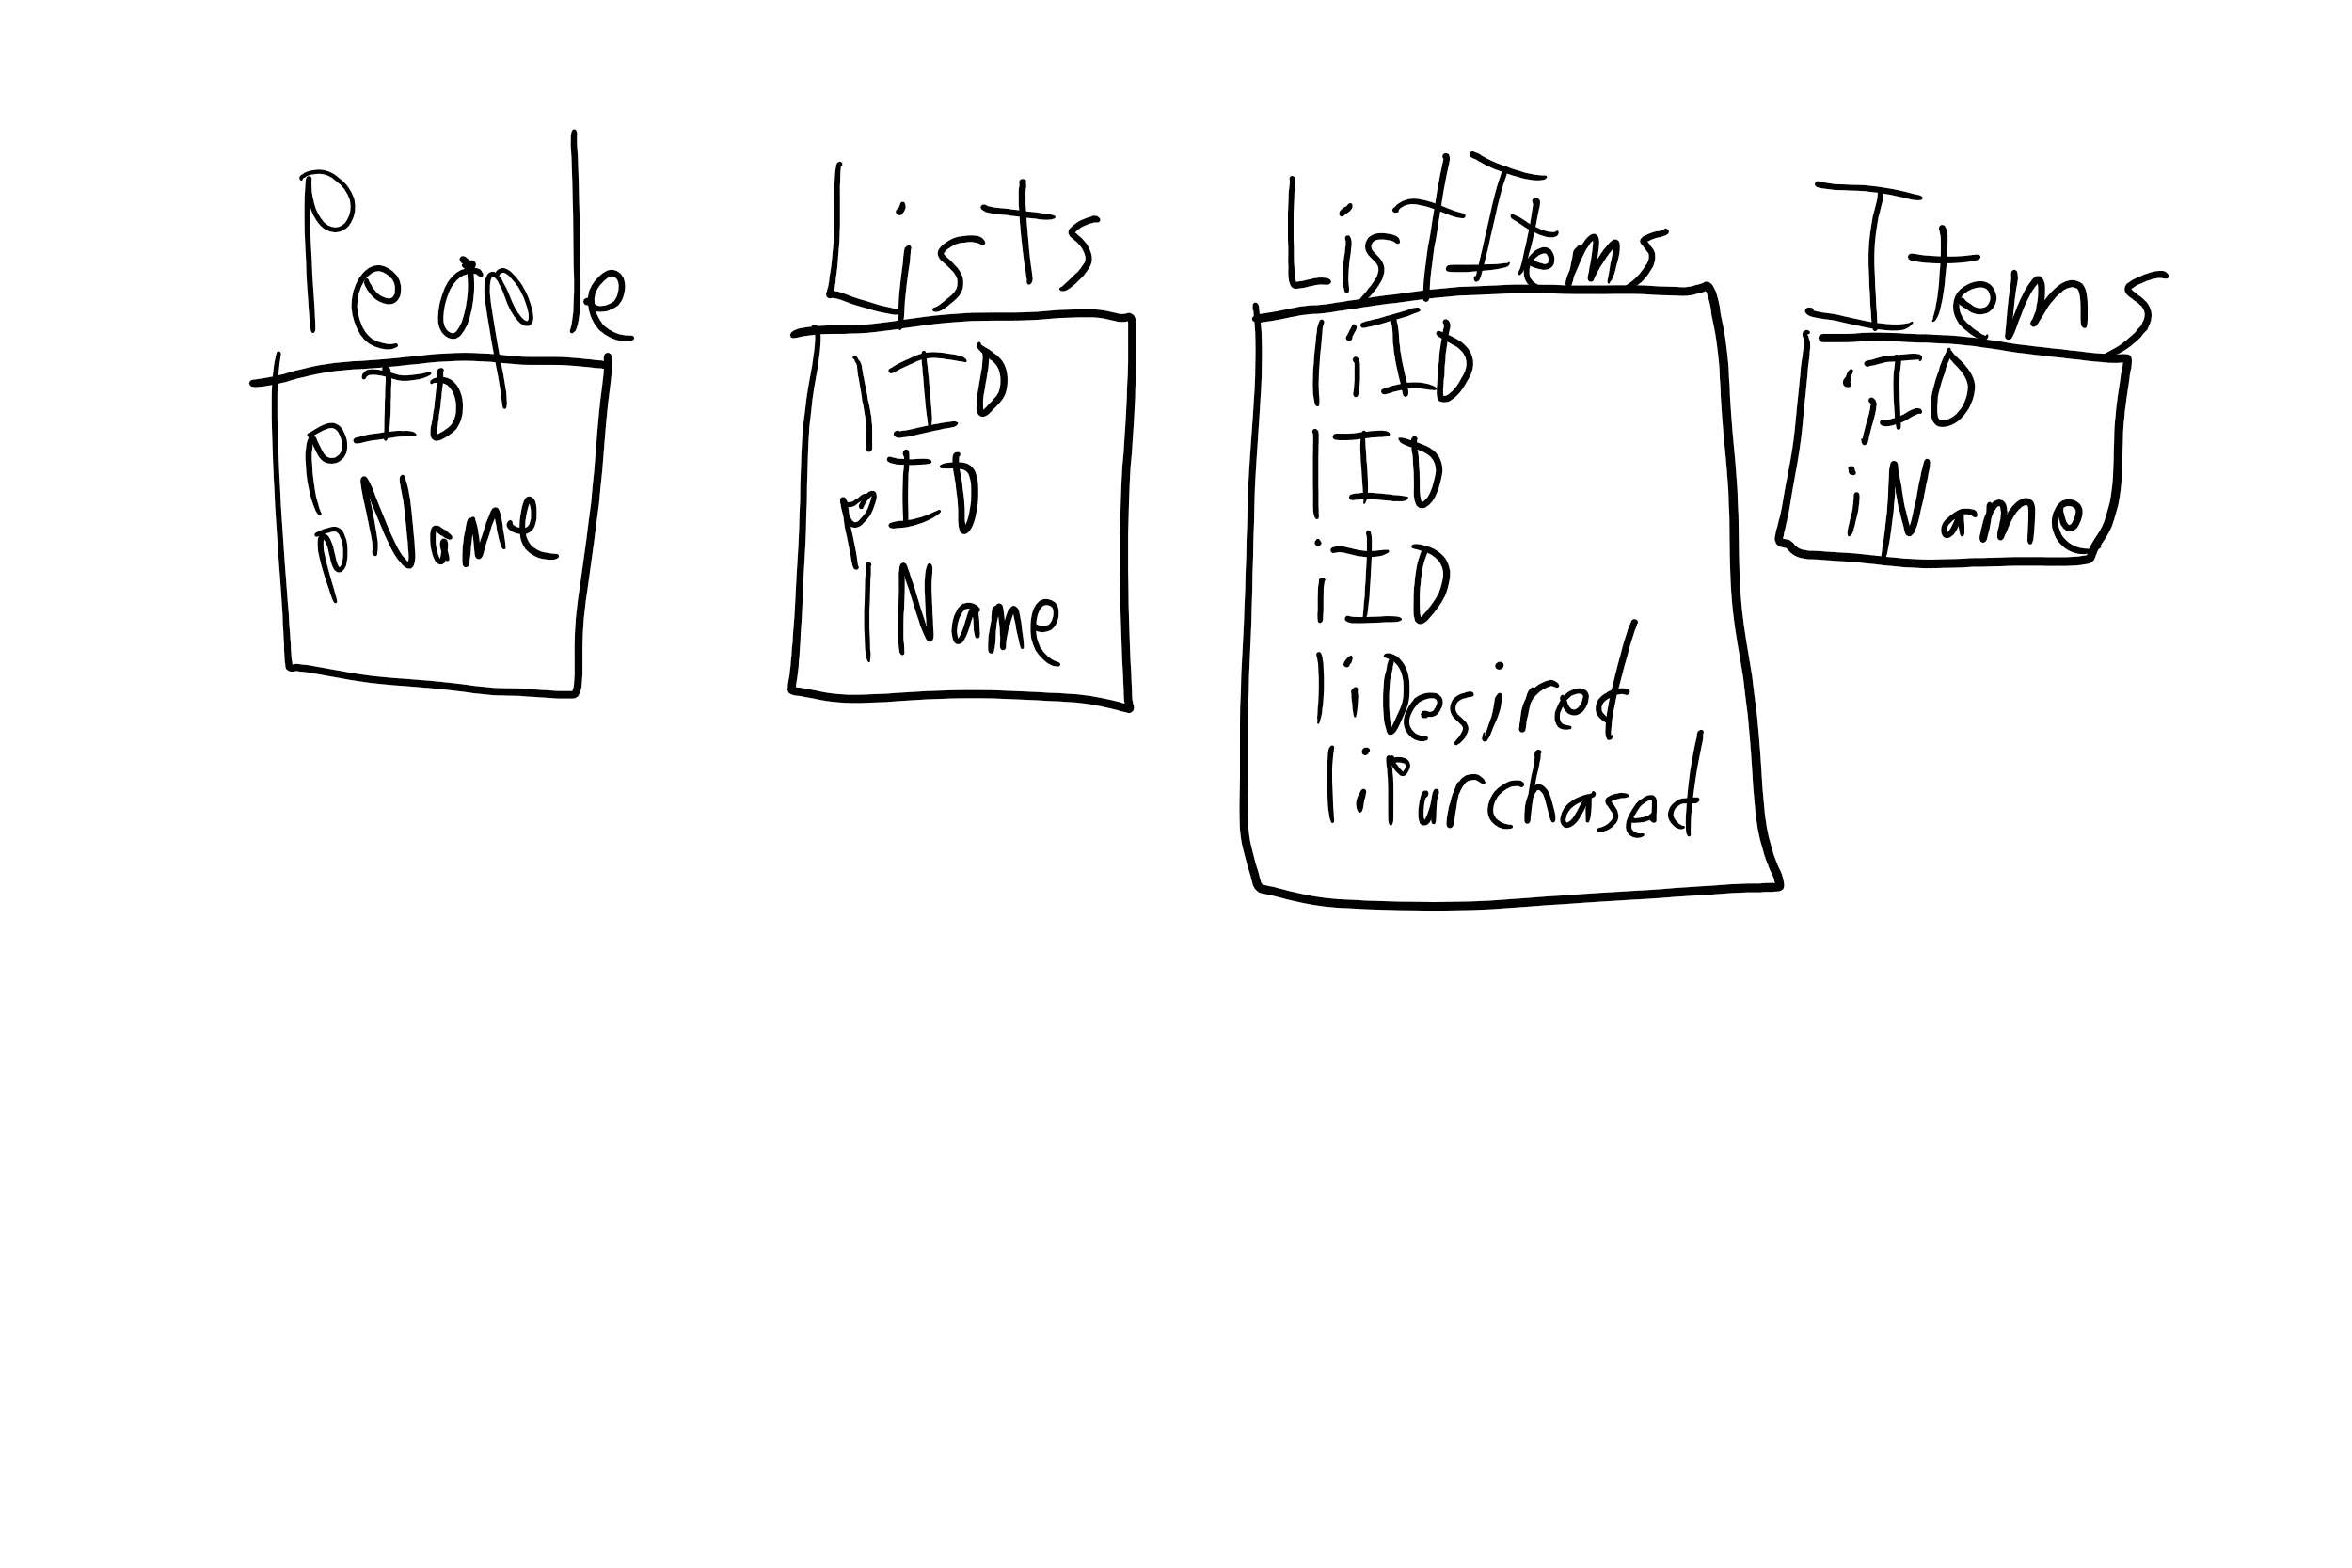 People
pID
pName
Lists
lID
pID
lName
ListItems
liID
lID
iID
liDesired
liPurchased
Items
iID
iName